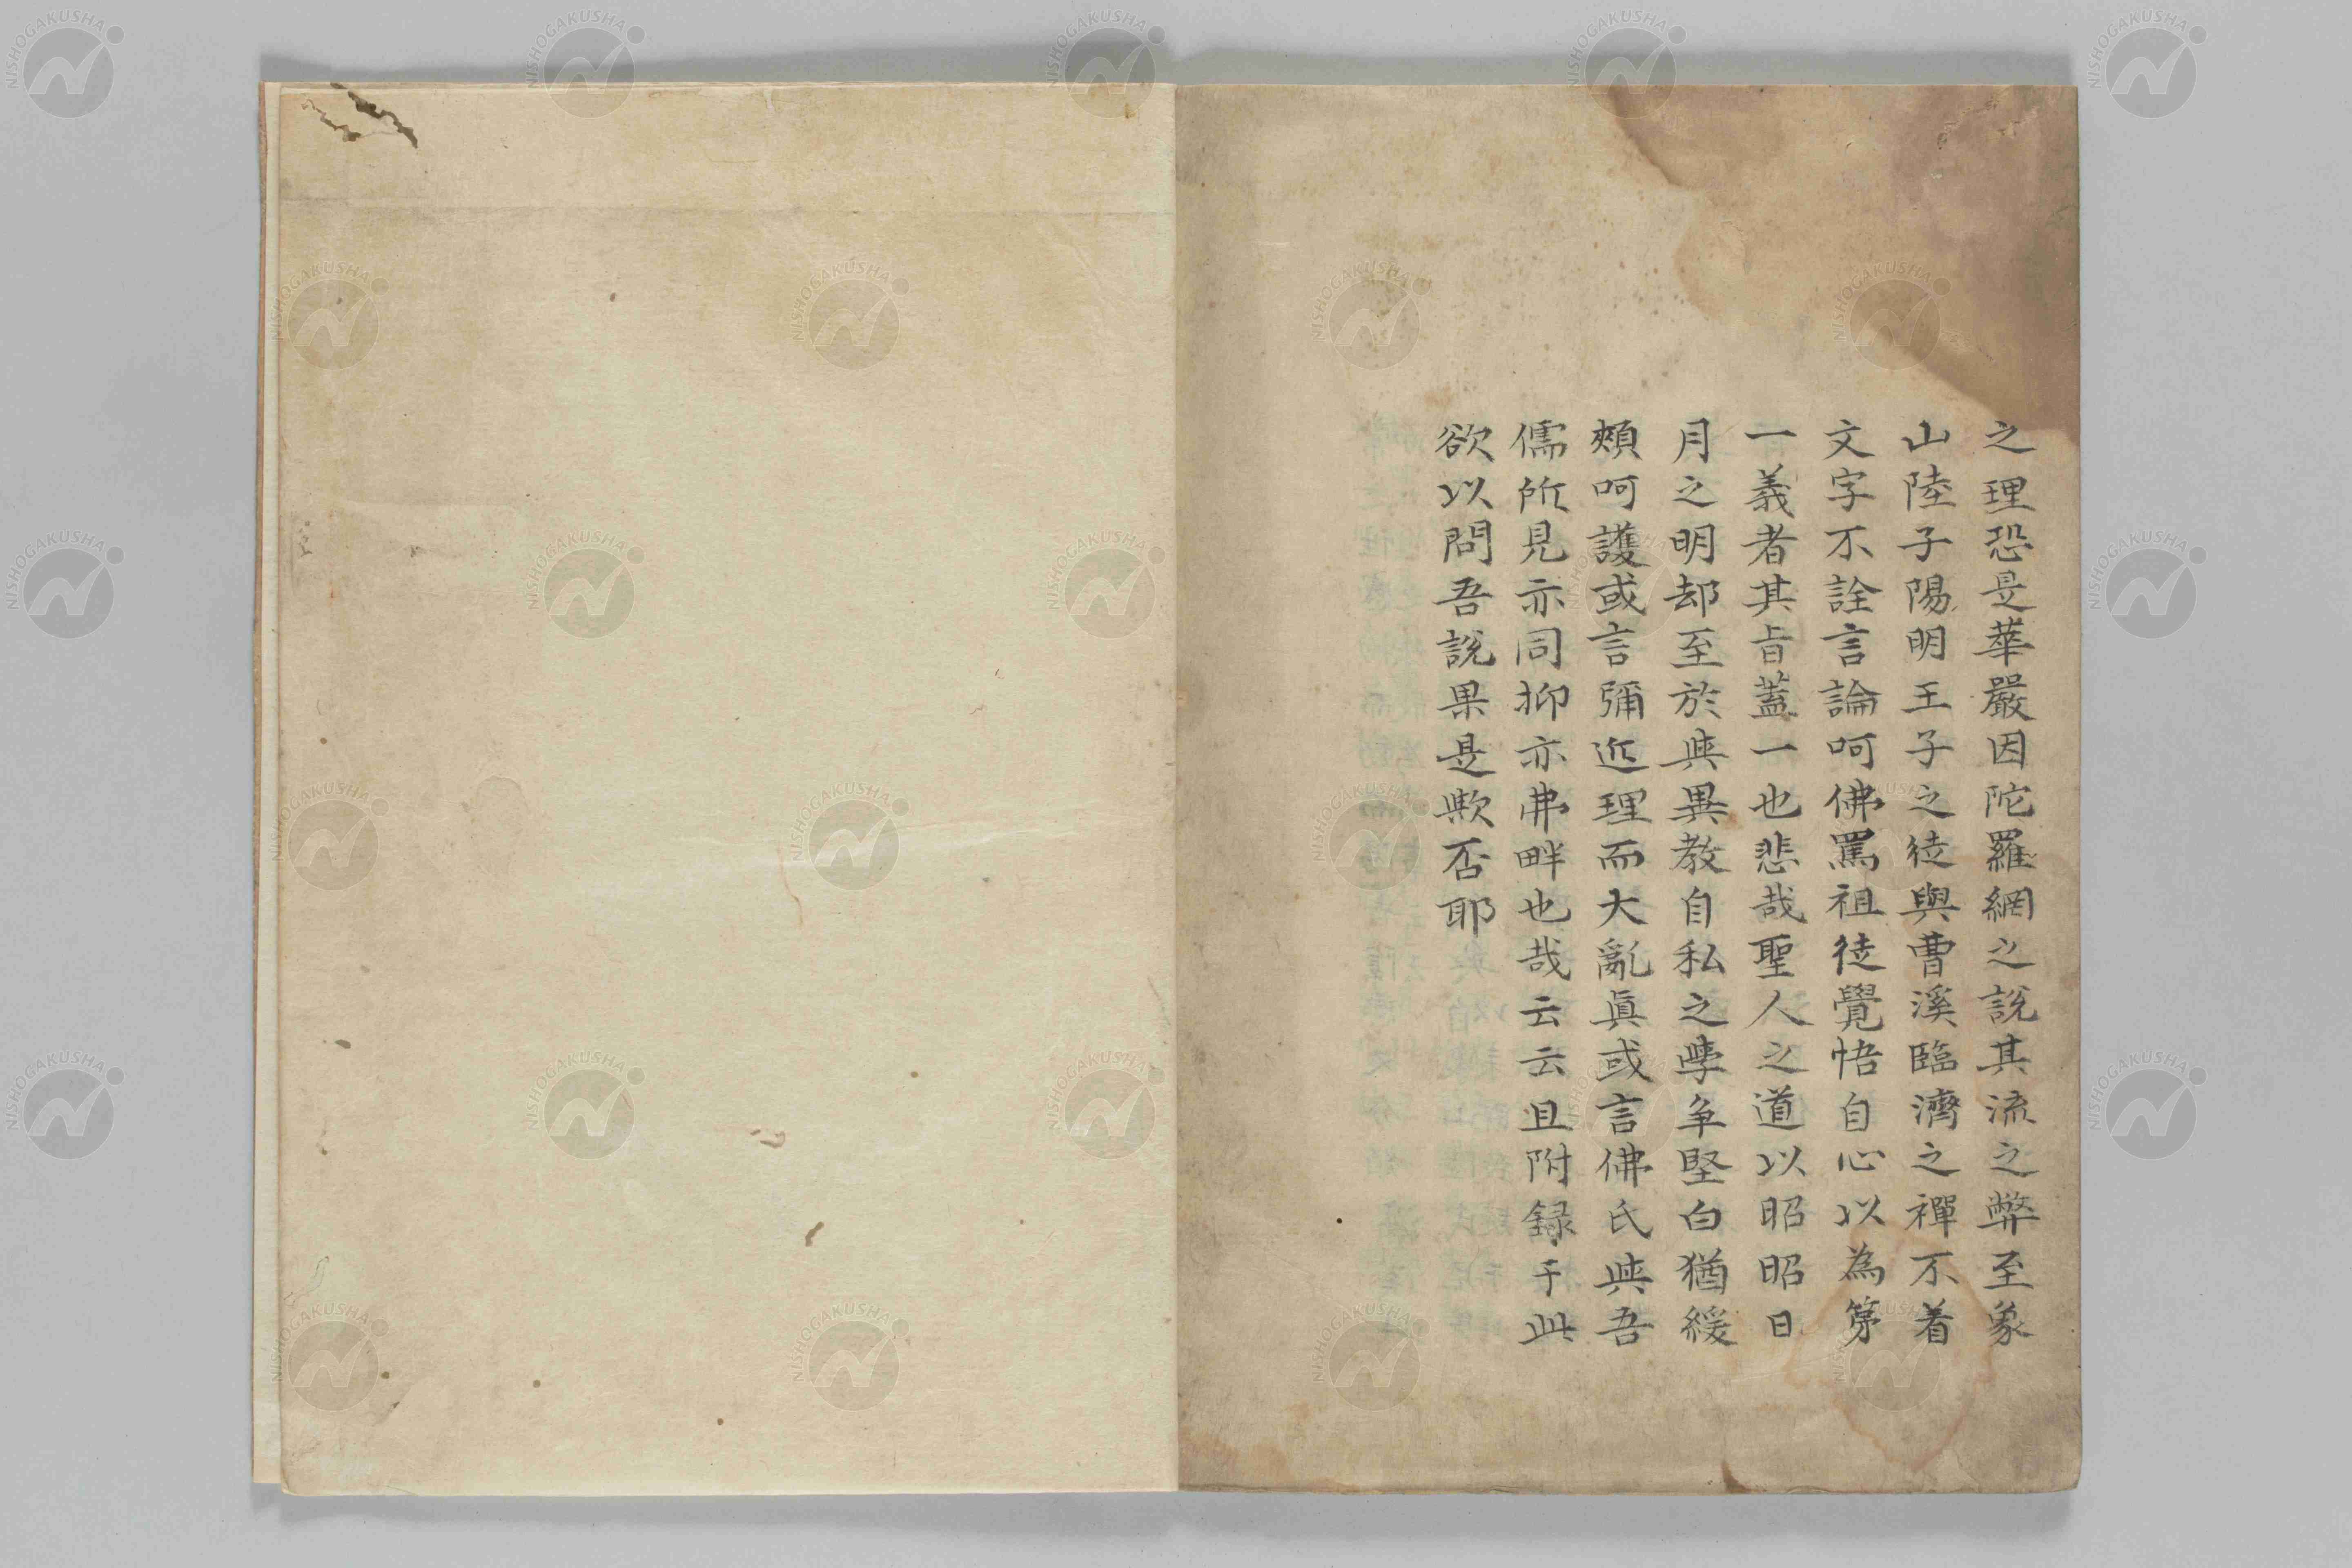 之理恐是華嚴因陀羅網之說其流之弊至象
山陸子陽明王子之徒與曹溪臨濟之禪不着
文字不詮言論呵佛罵祖徒覺悟自心以為第
一義者其旨蓋一也悲哉聖人之道以昭昭日
月之明却至於與異教自私之學争堅白猶緩
頰呵護或言彌近理而大亂眞或言佛氏與吾
儒所見亦同抑亦弗畔也哉云云且附録于此
欲以問吾說果是歟否耶
NISHOGAKUSHA